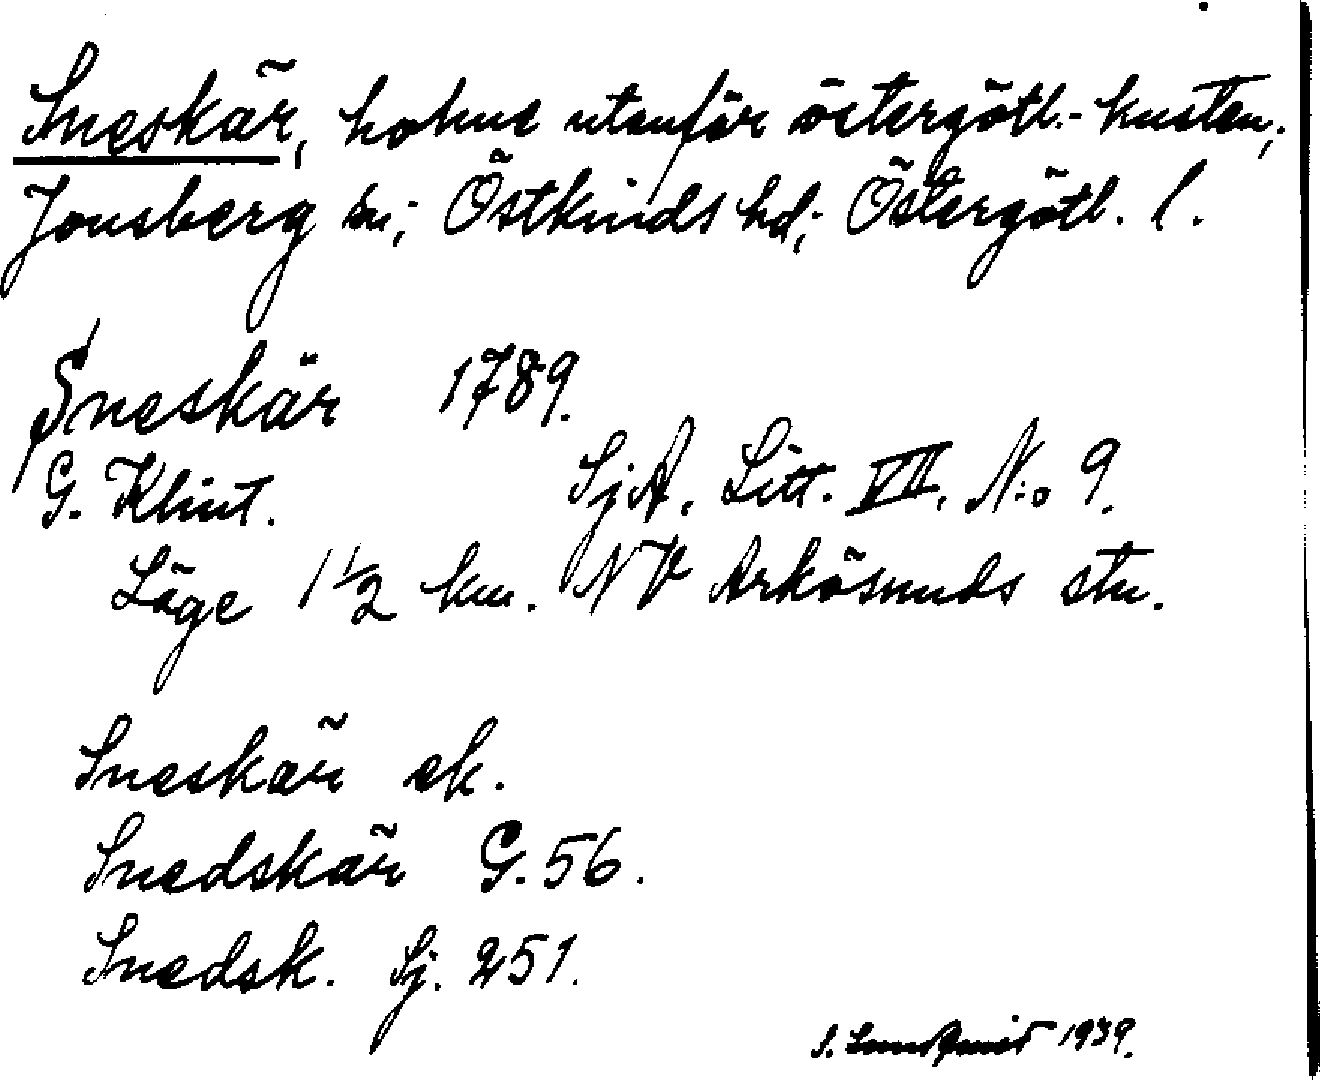 Sneskär, holme utanför östergötl.-kusten,
Jonsberg sn; Östkinds hd; Östergötl. l.
Sneskär 1789.
G. Klint. SjA, Litt. VII, N:o 9.
Läge 1 1/2 km. NV Arkösunds stn.
Sneskär ek.
Snedskär G. 56.
Snedsk. Sj. 251.
S. Landqvist 1939.